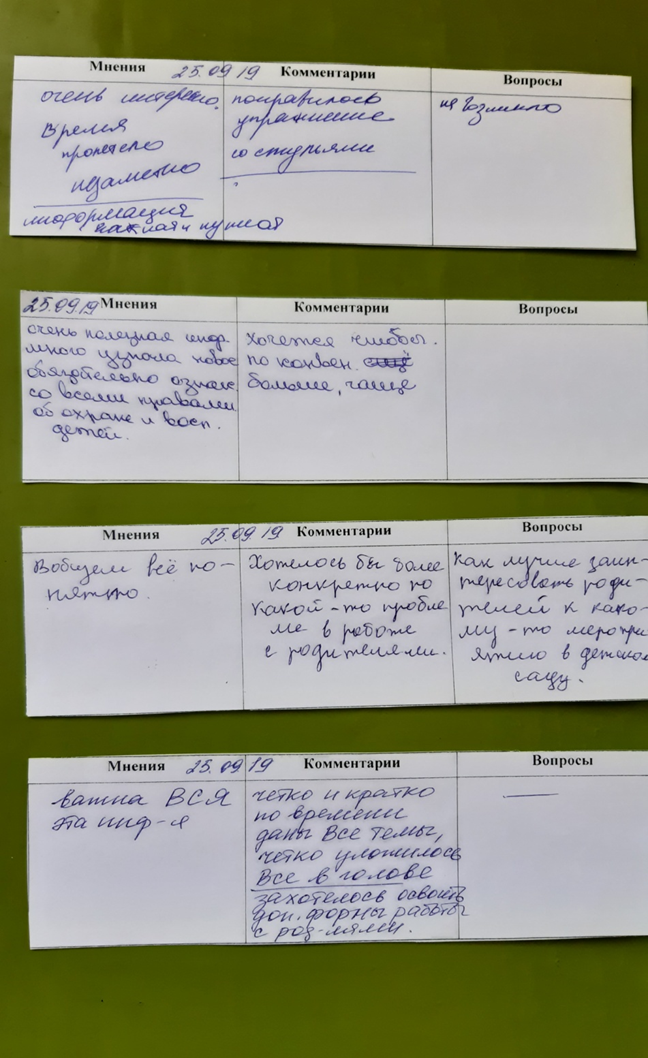 Мнения 25.09 19 Комментарии Вопросы
очень интересно.
Время
пролетело
незаметно
информация
важная и нужная
понравилось
упражнение
со стульями
не возникло
25.09.19 Мнения Комментарии Вопросы
очень полезная инф.
много узнала новое
обязательно ознак
со всеми правами
об охране и восп.
детей.
Хочется чтобы.
по конвен. ещё
больше, чаще
Мнения 25.09 19 Комментарии Вопросы
Вобщем всё по-
нятно.
Хотелось бы более
конкретно по
какой-то пробле
ме в работе
с родителями.
Как лучше заин-
тересовать роди-
телей к како-
му-то меропри
ятию в детском
саду.
Мнения 25.09 19 Комментарии Вопросы
важна ВСЯ
эта инф-я
четко и кратко
по времени
даны Все темы,
четко уложилось
Все в голове
захотелось освоить
доп. формы работы
с род-лями.